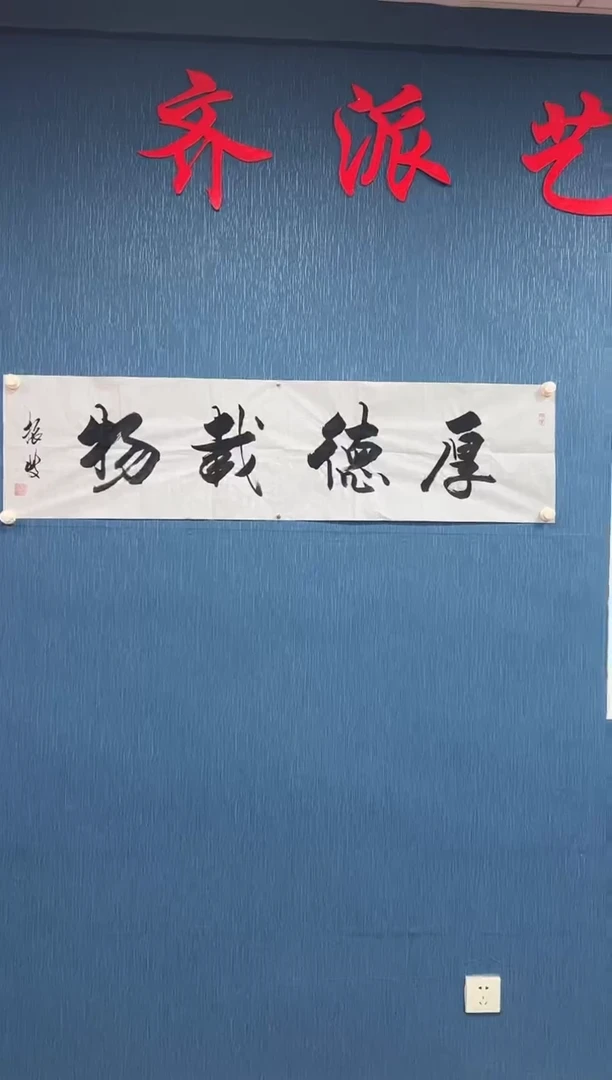 齐派艺
厚德载物
振